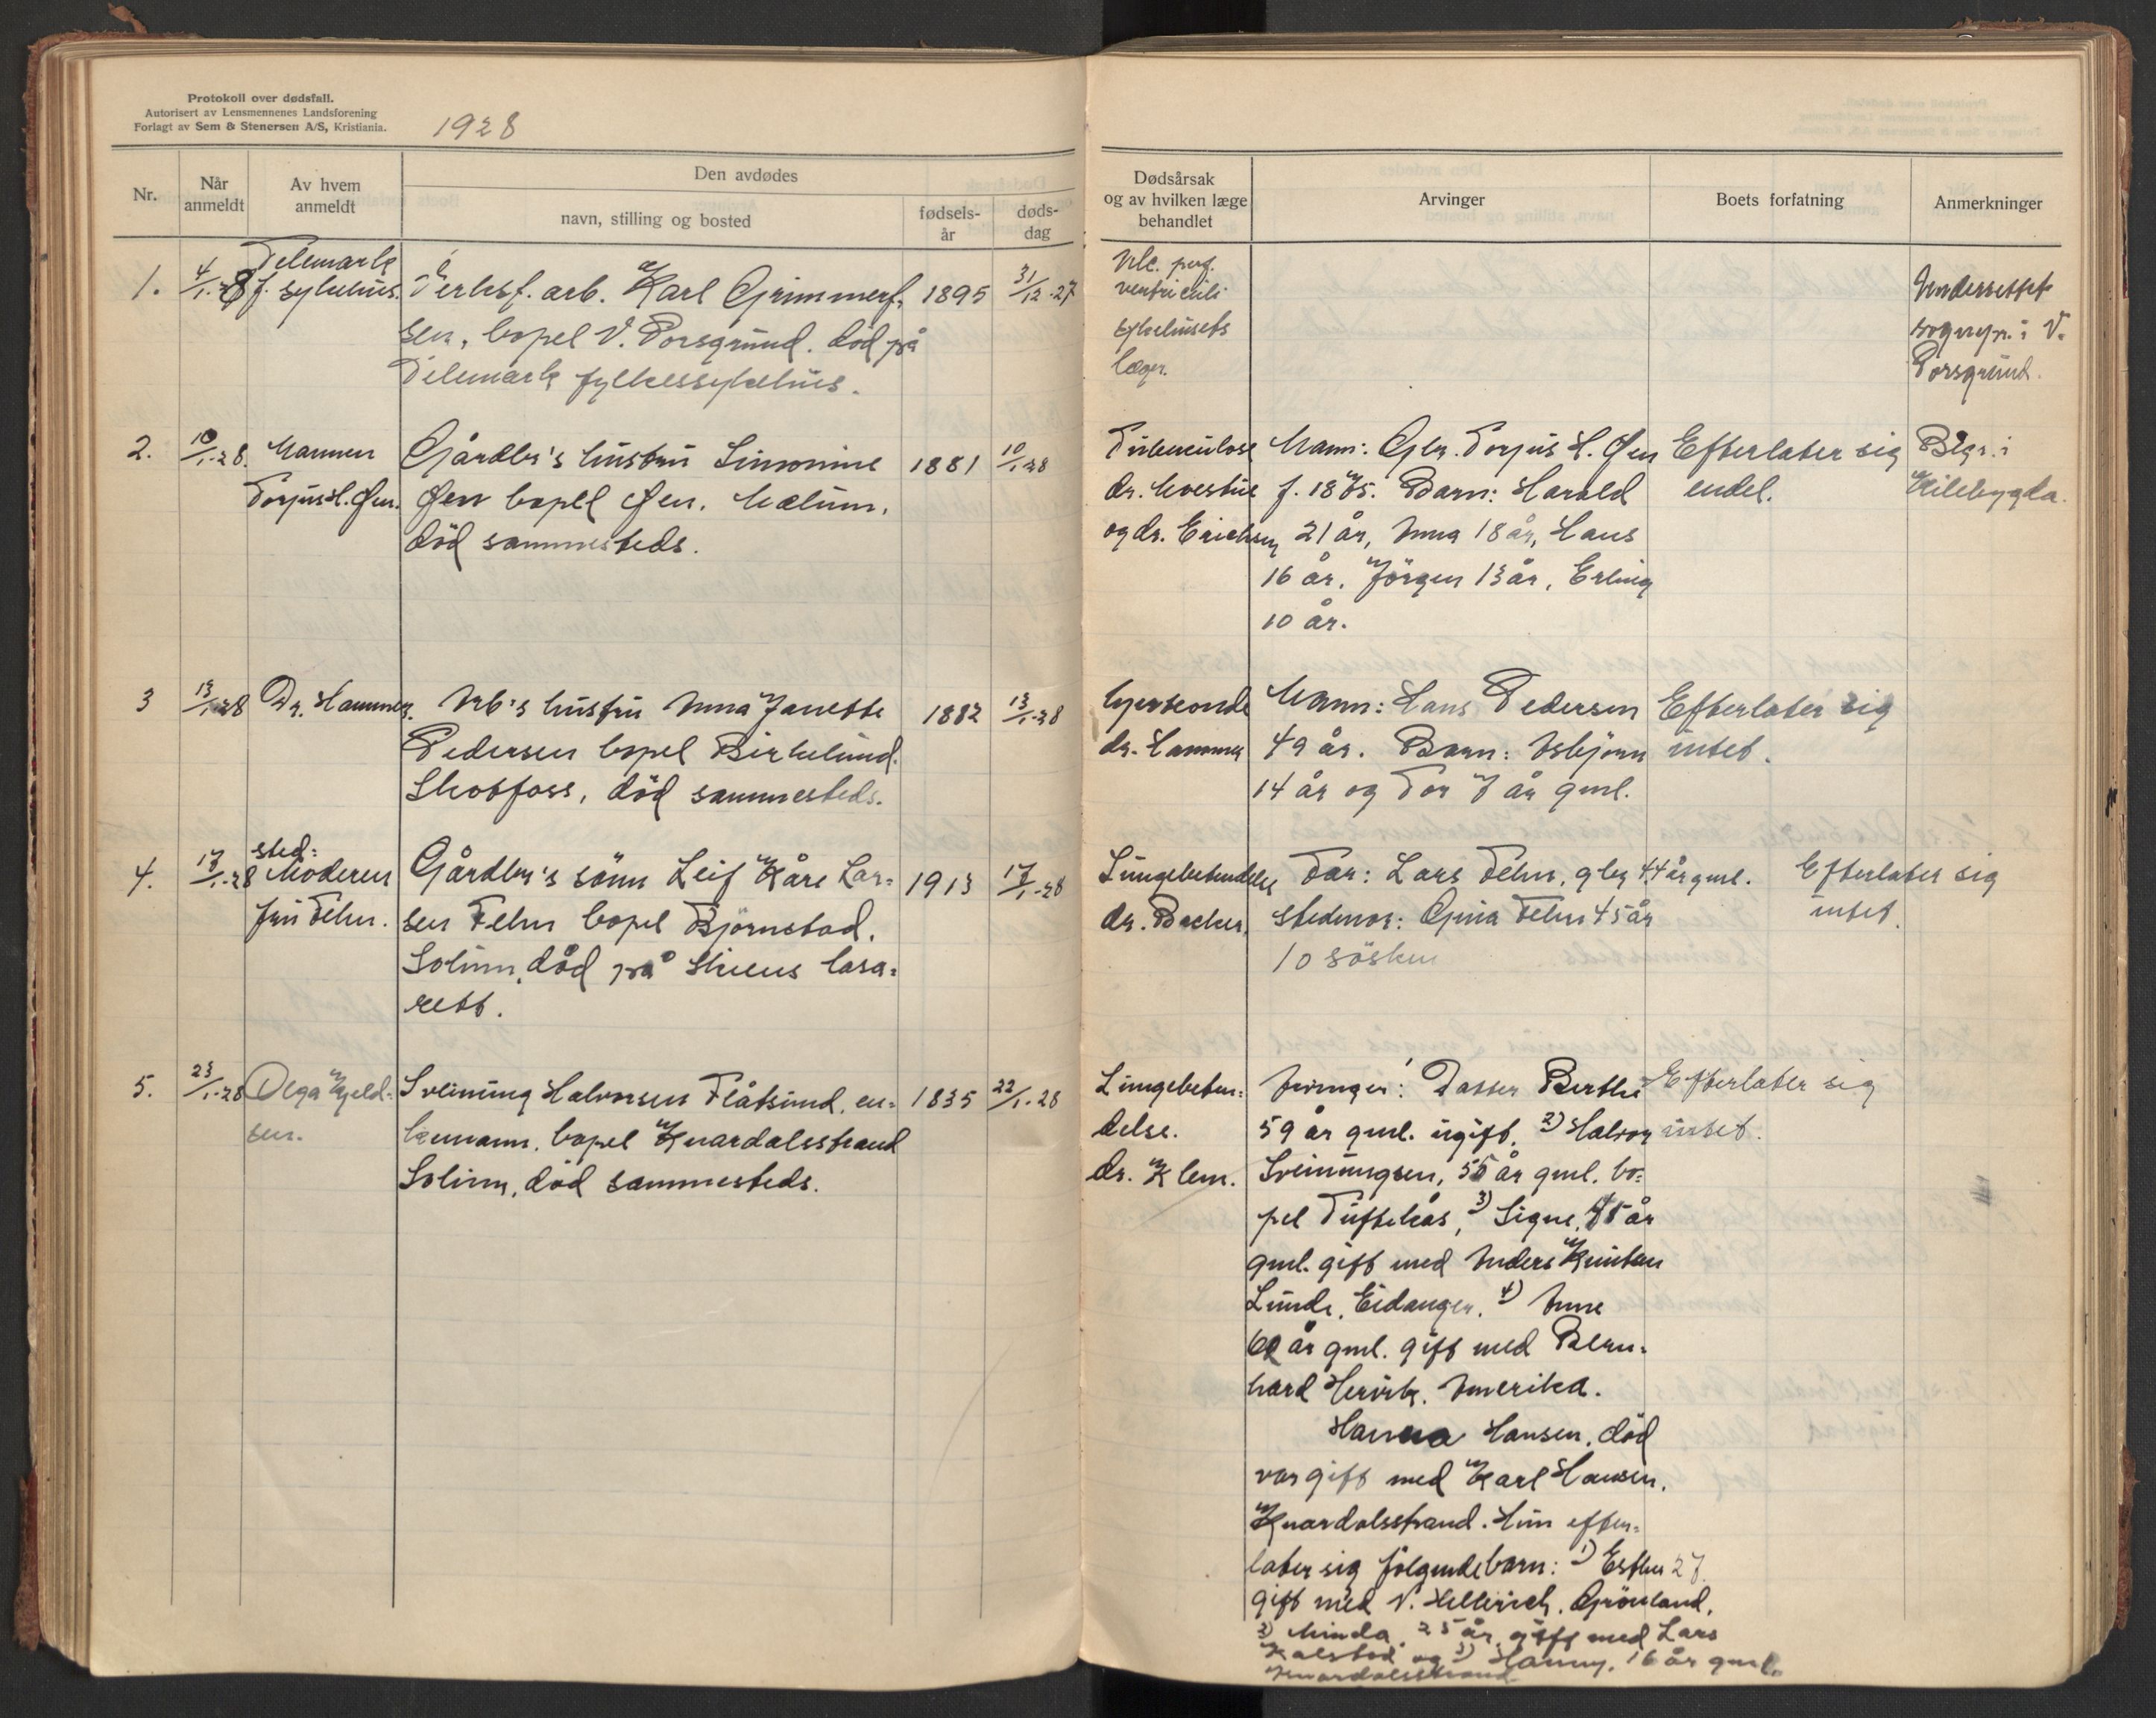 Protokoll over dødsfall.
Autorisert av Lensmennenes Landsforening
Forlagt av Sem & Stenersen A/S, Kristiania.
1928
Nr.
Når anmeldt
Av hvem anmeldt
Den avdødes
navn, stilling og bosted
fødsels-år
døds-dag
Dødsårsak og av hvilken læge behandlet
Arvinger
Boets forfatning
Anmerkninger
1.
4/1.-28
Telemark
f. sykehus.
Verksf. arb. Karl
sen, bopel V. Porsgrund. död på
Telemark fylkessykehus.
1895
31/12-27
Ulc. perf.
ventriculi
sykehusets
læger.
Underrettet
sognepr. i V.
Porsgrund.
2.
10/1.-28.
Mannen
Torjus H. Øen.
Gårdbr's hustru Simonine
Øen bopel Øen. Mælum.
död sammesteds.
1881
10/1-28
Tuberculose
dr. Moestue
og dr. Erichsen
Mann: Gbr. Torjus H. Øen
f. 1875. Barn: Harald
21 år, Anna 18 år, Hans
16 år. Jörgen 13 år, Erling
10 år.
Efterlater sig
endel.
Begr. i
Kilebygda.
3
13/1-28
Dr. Hammer.
Arb's hustru Anna Janette
Pedersen bopel Birkelund.
Skotfoss, död sammesteds.
1882
13/1-28
dr. Hammer
Mann: Hans Pedersen
49 år. Barn: Asbjørn
14 år og Tor 7 år gml.
Efterlater sig
intet.
4.
17/1.-28
sted=
Moderen
fru Fehn.
Gårdbr's sönn Leif Kåre Lar=
sen Fehn bopel Bjørnstad.
Solum, död på Skiens lasa=
rett.
1913
17/1-28
Lungebetendelse
dr. Backer.
Far: Lars Fehn, gbr 44 år gml.
Stedmor: Gina Fehn 45 år
10 sösken
Efterlater sig
intet.
5.
23/1.-28
Olga Kjeld=
sen.
Sveinung Halvorsen Flåtsund, en=
kemann. bopel Knardalsstrand
Solum, död sammesteds.
1835
22/1.-28
Lungebeten=
delse.
dr. Klem.
Arvinger: Datter Berthe
59 år gml. ugift. 2) Halvor
Sveinungsen, 55 år gml. bo=
pel Tuftekås, 3) Signe, 45 år
gml. gift med Anders Knutsen
Lunde, Eidanger. 4) Anne
60 år gml. gift med Bern=
hard Amerika.
Hanna Hansen, död
var gift med Karl Hansen.
Knardalsstrand. Hun efter=
later sig følgende barn: 1) Esther 27.
gift med V. Grönland.
2) Minda, 25 år, gift med Lars
Kalstad og 3) Hanny, 16 år gml.
Knardalsstrand
Efterlater sig
intet.